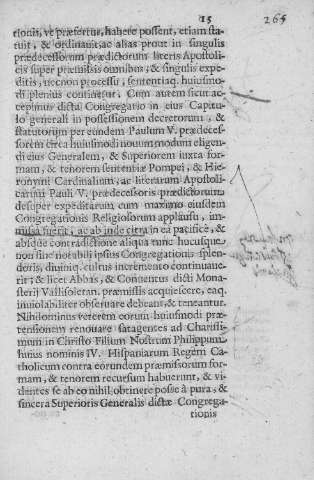 15 265
tionis, vt præfertur, habere possent, etiam sta-
tuit, & ordinauit, ac alias prout in singulis
prædecessorum prædictorum literis Apostoli-
cis super præmissis omnibus, & singulis expe-
ditis, necnon processu, sententiaq. huiusmo-
di plenius continetur. Cum autem sicut ac-
cepimus dicta Congregatio in eius Capitu-
lo generali in possessionem decretorum, &
statutorum per eundem Paulum V. prædeces-
sorem circa huiusmodi nouum modum eligen-
di eius Generalem, & Superiorem iuxta for-
mam, & tenorem sententiæ Pompei, & Hie-
ronymi Cardinalium, ac literarum Apostoli-
carum Pauli V. prædecessoris prædictorum
desuper expeditarum cum maximo eiusdem
Congregationis Religiosorum applausu, im-
missa fuerit, ac ab inde citra in ea pacificè, &
absque contradictione aliqua tunc hucusque
non sine notabili ipsius Congregationis splen-
doris, diuiniq. cultus incremento continuaue-
rit; & licet Abbas, & Conuentus dicti Mona-
sterij Vallisoletan. præmissis acquiescere, eaq.
inuiolabiliter obseruare debeant, & teneantur.
Nihilominus veterem eorum huiusmodi præ-
tensionem renouare satagentes ad Charissi-
mum in Christo Filium Nostrum Philippum
huius nominis IV. Hispaniarum Regem Ca-
tholicum contra eorundem præmissorum for-
mam, & tenorem recursum habuerunt, & vi-
dentes se ab eo nihil obtinere posse à pura, &
sincera Superioris Generalis dictæ Congrega-
tionis